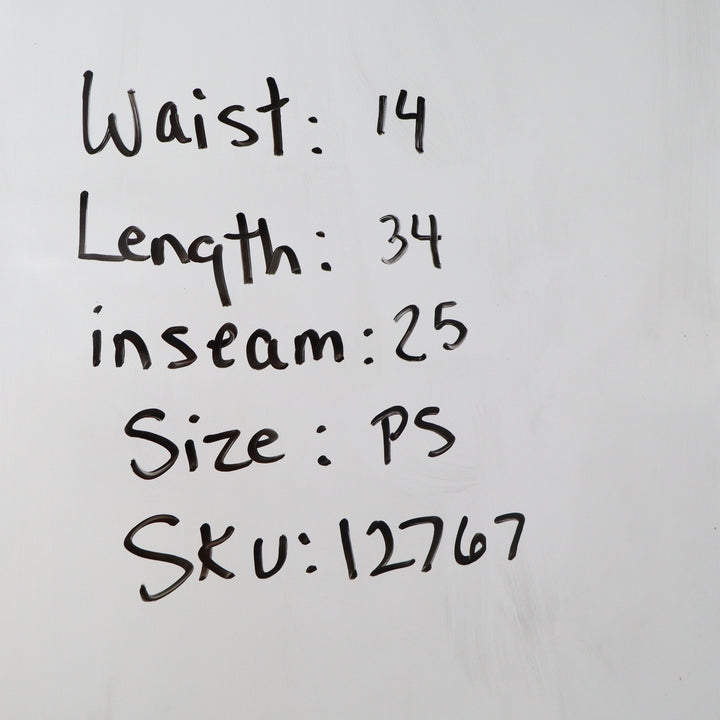 Waist: 14
Length: 34
inseam: 25
Size: PS
SKU: 12767